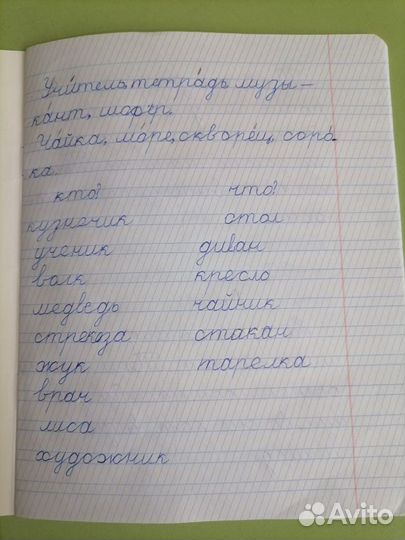 Учи́тель, тетра́дь музы-
ка́нт, шофёр.
Ча́йка, мо́ре, скворе́ц, соро́-
ка.
кто? что?
кузнечик стол
ученик диван
волк кресло
медведь чайник
стрекоза стакан
жук тарелка
врач
лиса
художник
Avito